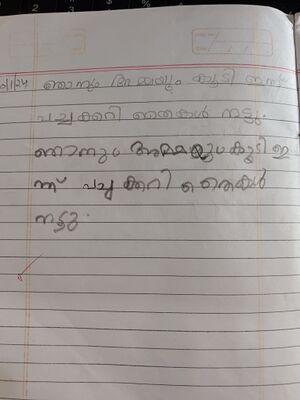 /1/24 ഞാനും അമ്മയും കൂടി ഇന്ന്
പച്ചക്കറി തൈകൾ നട്ടു.
ഞാനും അമ്മയും കൂടി ഇ
ന്ന് പച്ചക്കറി തൈകൾ
നട്ടു.